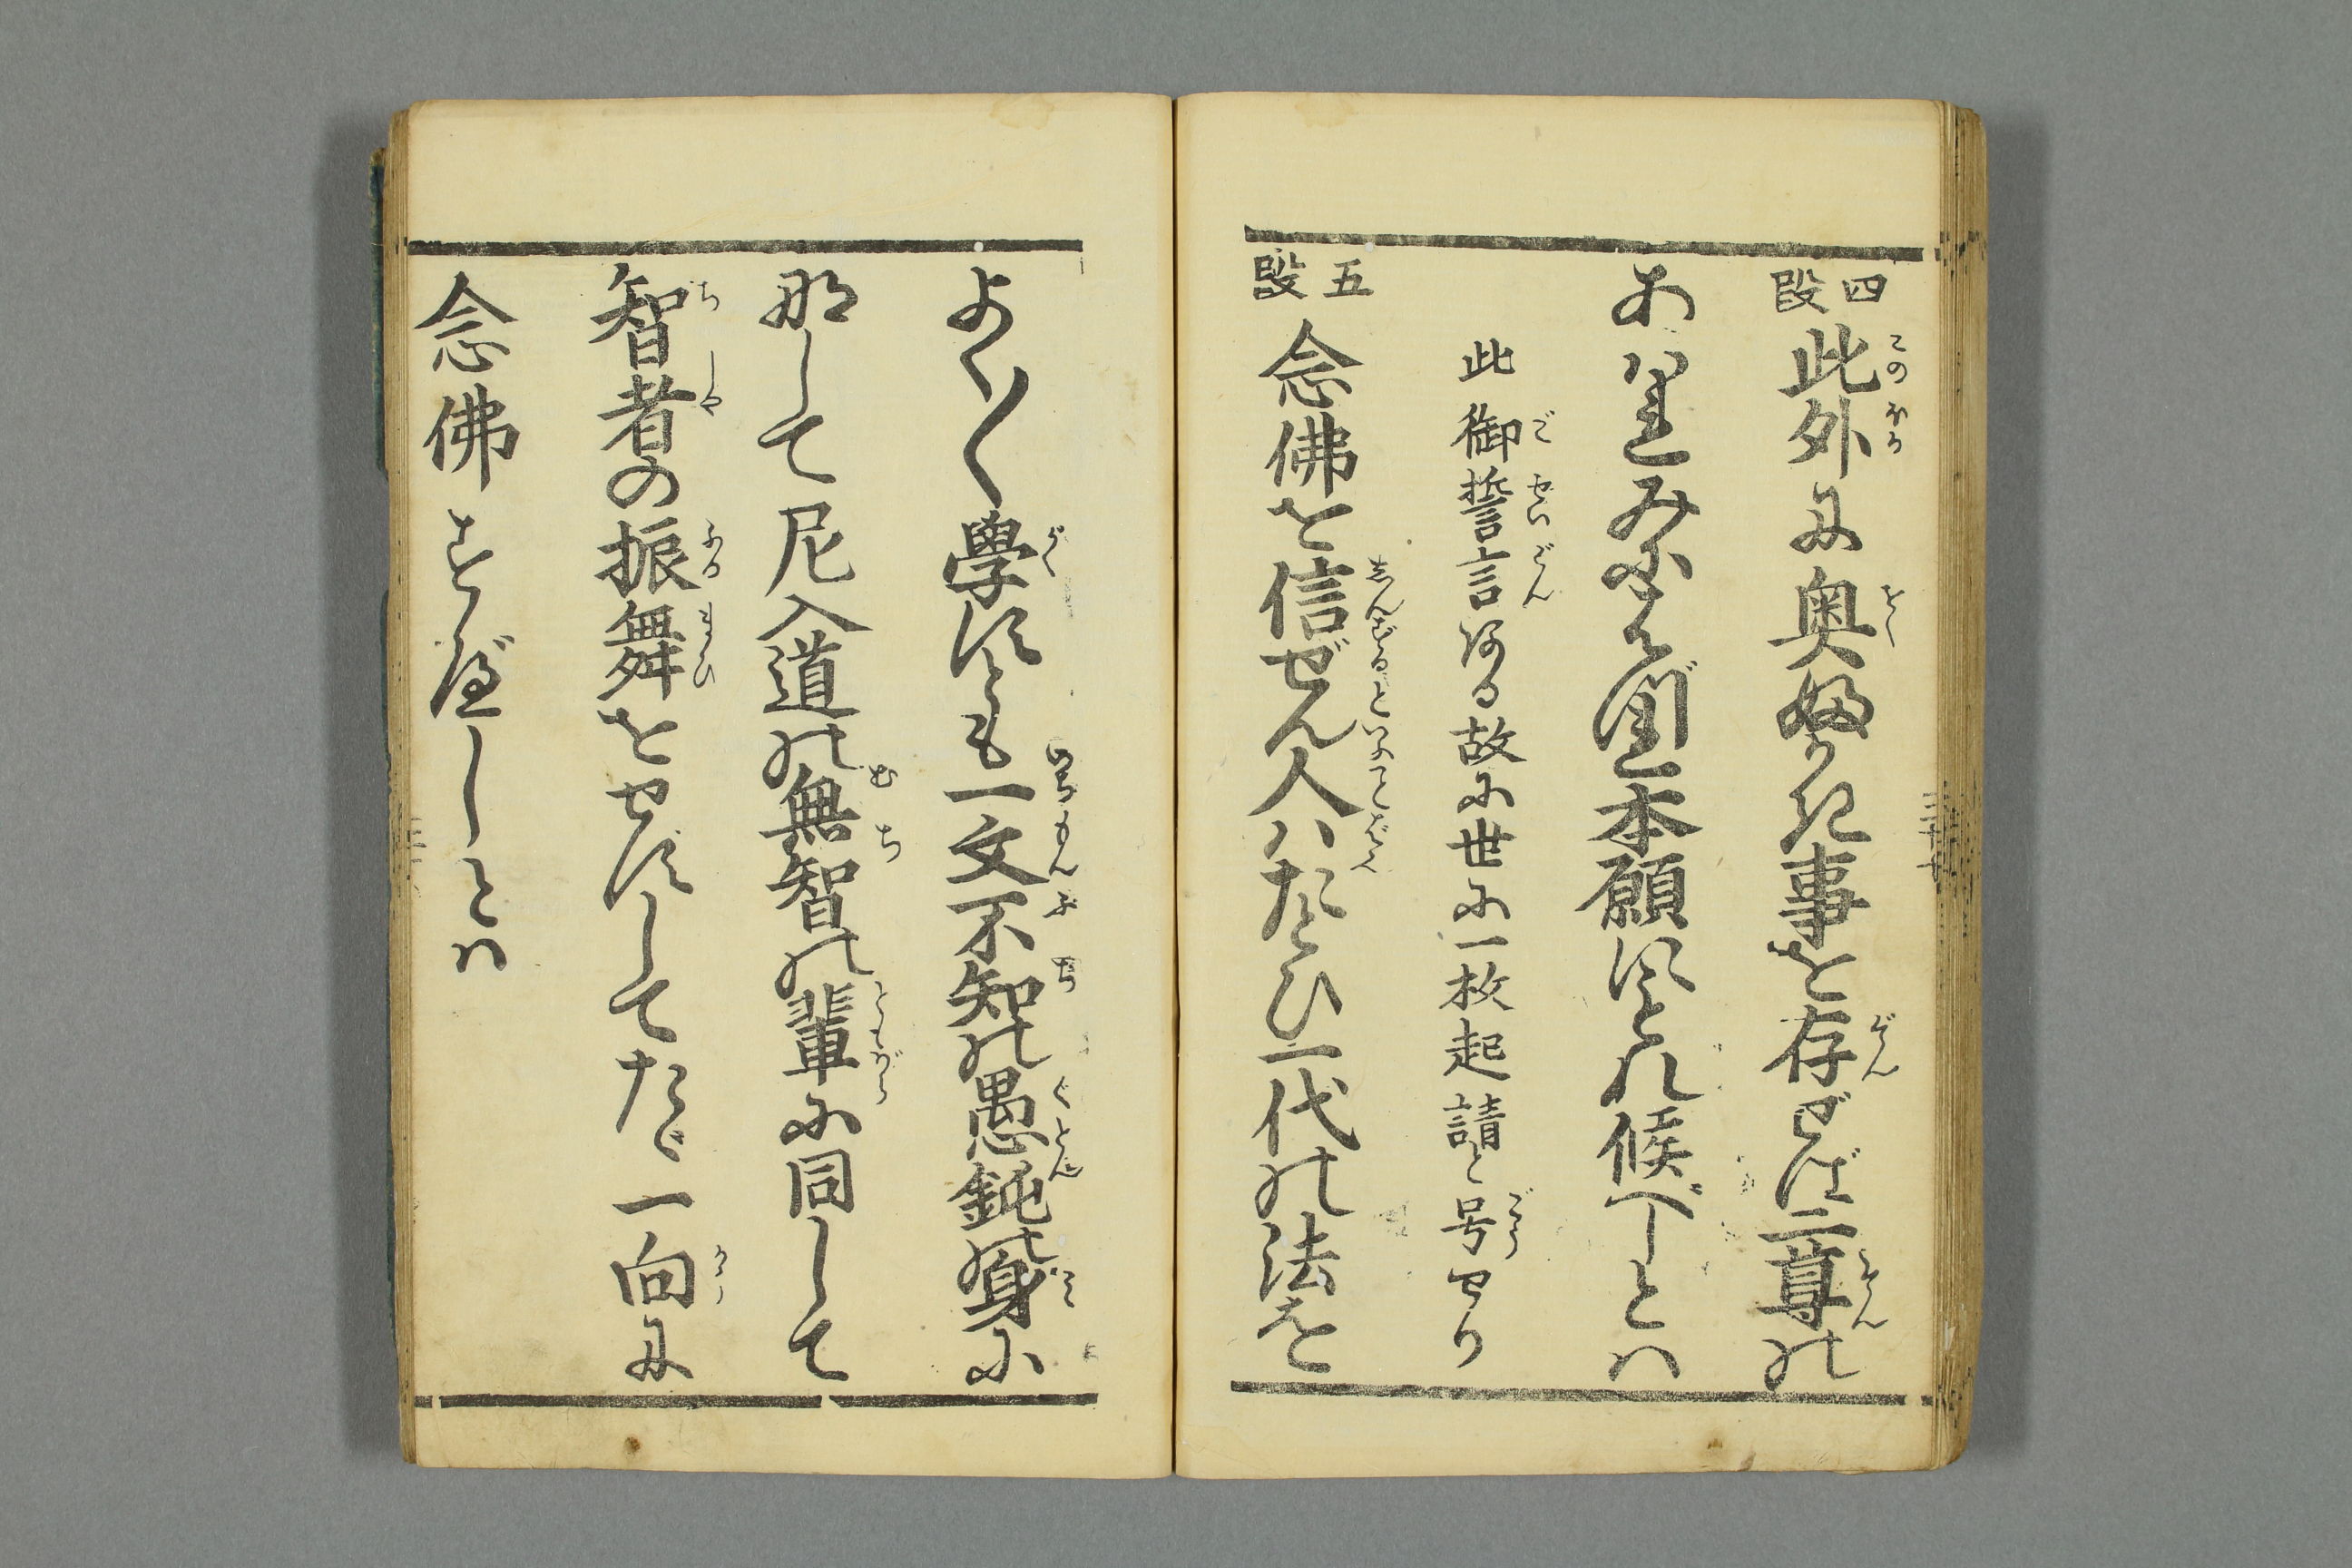 四段
此外に奥ふかき事を存ぜば二尊の
あはれみにはづれ本願にもれ候べしとハ
此御誓言ある故に世に一枚起請と号せり
五段
念佛を信ぜん人ハたとひ一代の法を
よく〳〵學すとも一文不知の愚鈍の身に
那して尼入道の無智の輩に同して
智者の振舞をせずしてたゞ一向に
念佛すべしとハ